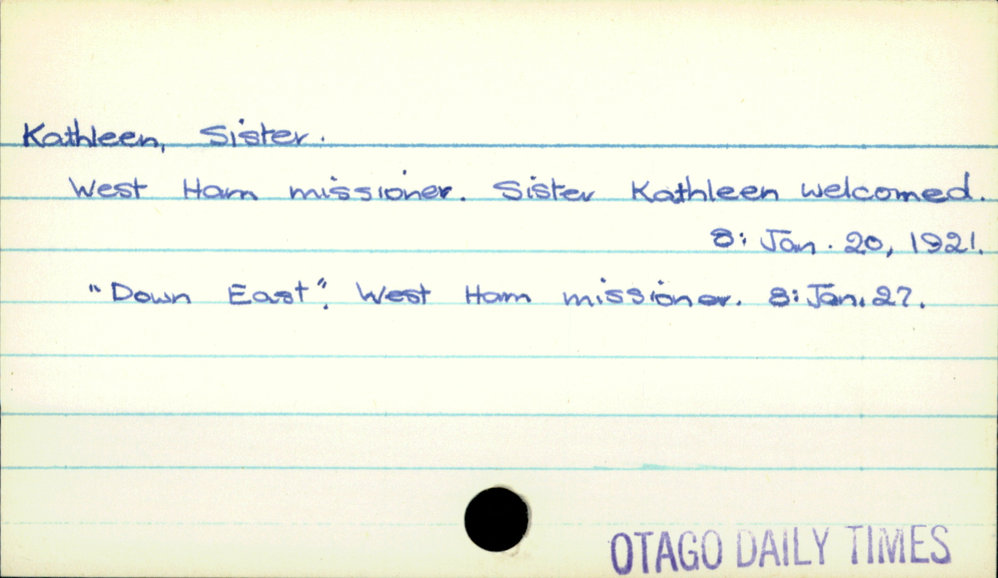 Kathleen, Sister.
West Ham missioner. Sister Kathleen welcomed.
8: Jan. 20, 1921.
"Down East". West Ham missioner. 8: Jan. 27.
OTAGO DAILY TIMES